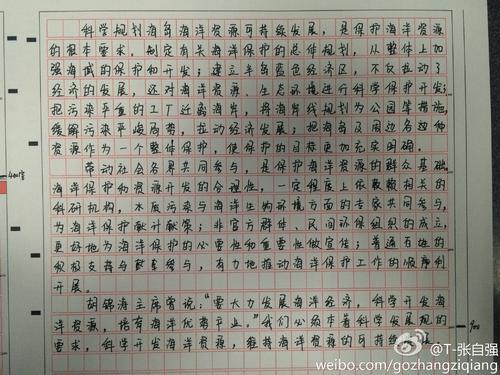 科学规划海岛海洋资源可持续发展，是保护海洋资源
的根本要求。制定有关海洋保护的总体规划，从整体上加
强海域的保护和开发；建立半岛蓝色经济区，不仅拉动了
经济的发展，还对海洋资源、生态环境进行科学保护开发；
把污染严重的工厂迁离海岸，将海岸线规划为公园等措施，
缓解污染严峻局势，拉动经济发展；把海岛及周边各种
资源作为一个整体保护，使保护的目标更加充实明确。
带动社会各界共同参与，是保护海洋资源的群众基础。
海洋保护和资源开发的合理性，一定程度上依靠相关的
科研机构，水质污染与海洋生物环境方面的专家共同参与，
为海洋保护献计献策；非官方群体、民间环保组织的成立，
更好地为海洋保护的必要性和重要性做宣传；普通百姓的
积极支持与参与，有力地推动海洋保护工作的顺利
开展。
胡锦涛主席曾说："要大力发展海洋经济，科学开发海
洋资源，培育海洋优势产业。"我们必须本着科学发展观的
要求，科学开发海洋资源，维持海洋资源的可持续发展
400字
@T-张自强
weibo.com/gozhangziqiang